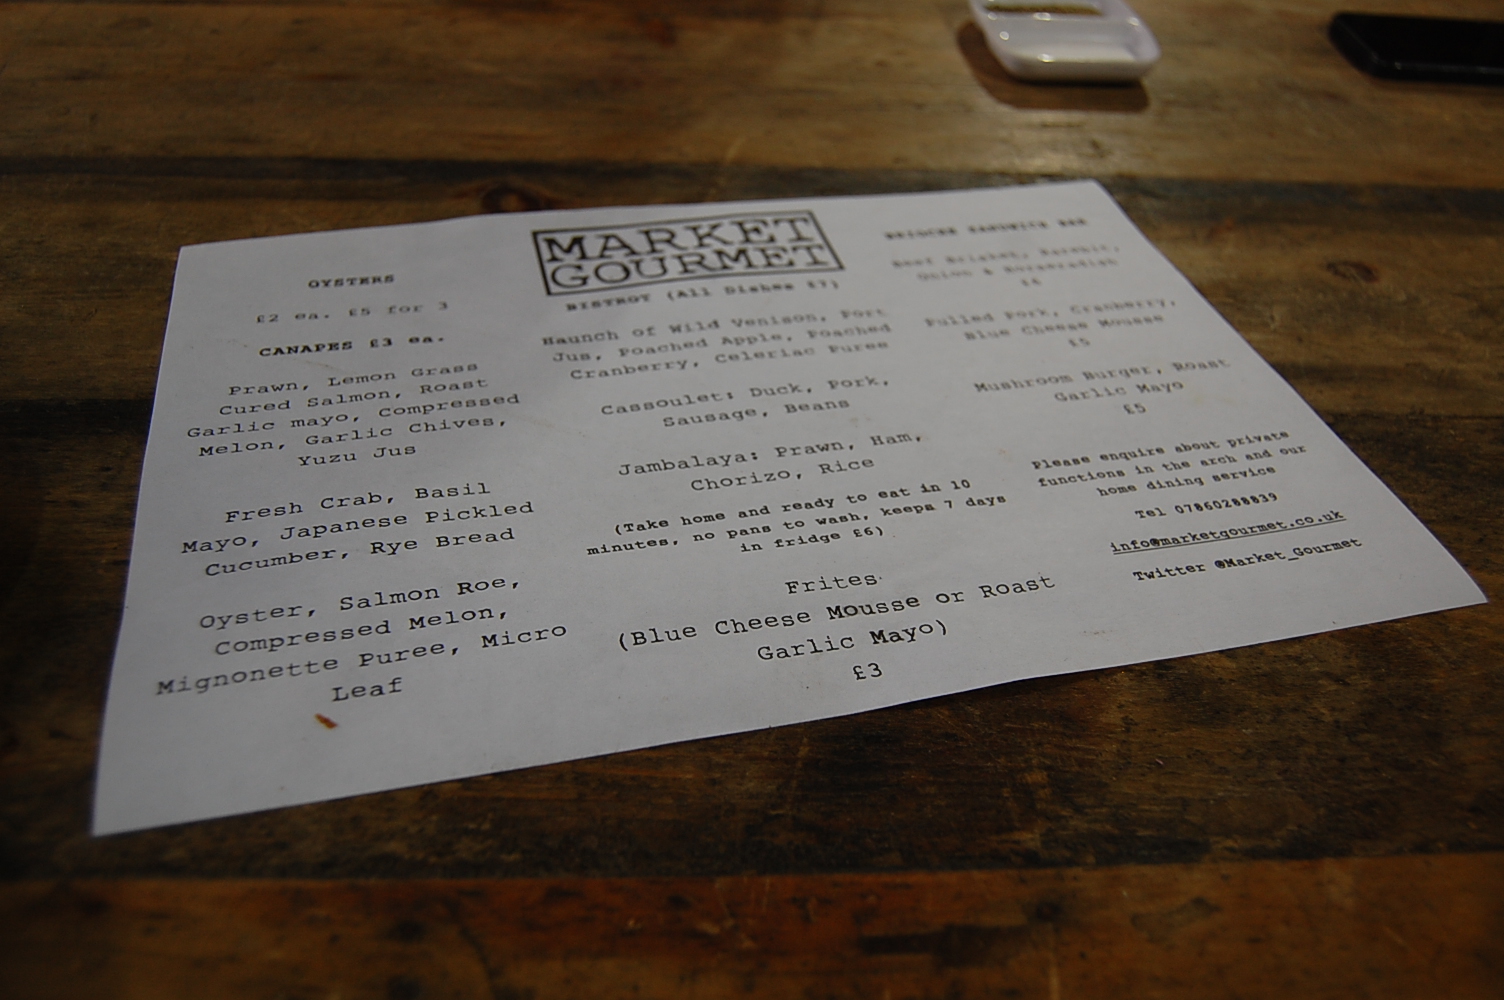 OYSTERS
£2 ea. £5 for 3
CANAPES £3 ea.
Prawn, Lemon Grass
Cured Salmon, Roast
Garlic mayo, Compressed
Melon, Garlic Chives,
Yuzu Jus
Fresh Crab, Basil
Mayo, Japanese Pickled
Cucumber, Rye Bread
Oyster, Salmon Roe,
Compressed Melon,
Mignonette Puree, Micro
Leaf
MARKET
GOURMET
BISTROT (All Dishes £7)
Haunch of Wild Venison, Port
Jus, Poached Apple, Poached
Cranberry, Celeriac Puree
Cassoulet: Duck, Pork,
Sausage, Beans
Jambalaya: Prawn, Ham,
Chorizo, Rice
(Take home and ready to eat in 10
minutes, no pans to wash, keeps 7 days
in fridge £6)
Frites
(Blue Cheese Mousse or Roast
Garlic Mayo)
£3
SANDWICH BAR
Beef Brisket,
Onion & Horseradish
Pulled Pork, Cranberry,
Blue Cheese Mousse
£5
Mushroom Burger, Roast
Garlic Mayo
£5
Please enquire about private
functions in the arch and our
home dining service
Tel 07860288839
info@marketgourmet.co.uk
Twitter @Market_Gourmet